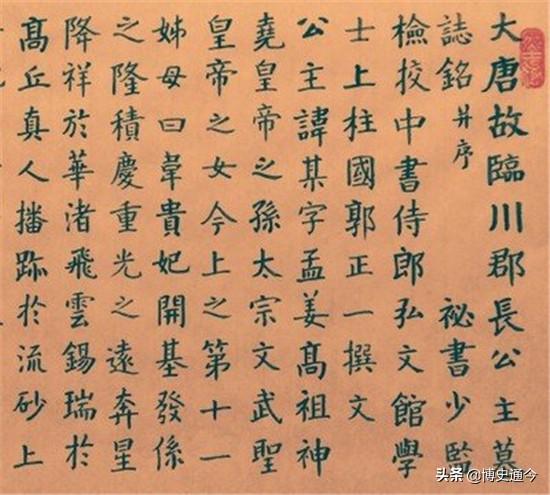 大唐故臨川郡長公主墓
誌銘 并序 祕書少監
檢挍中書侍郎弘文館學
士上柱國郭正一撰文
公主諱某字孟姜髙祖神
堯皇帝之孫太宗文武聖
皇帝之女今上之第十一
姊母曰韋貴妃開基發係
之隆積慶重光之遠奔星
降祥於華渚飛雲錫瑞於
髙丘真人播跡於流砂上
头条 @博史通今